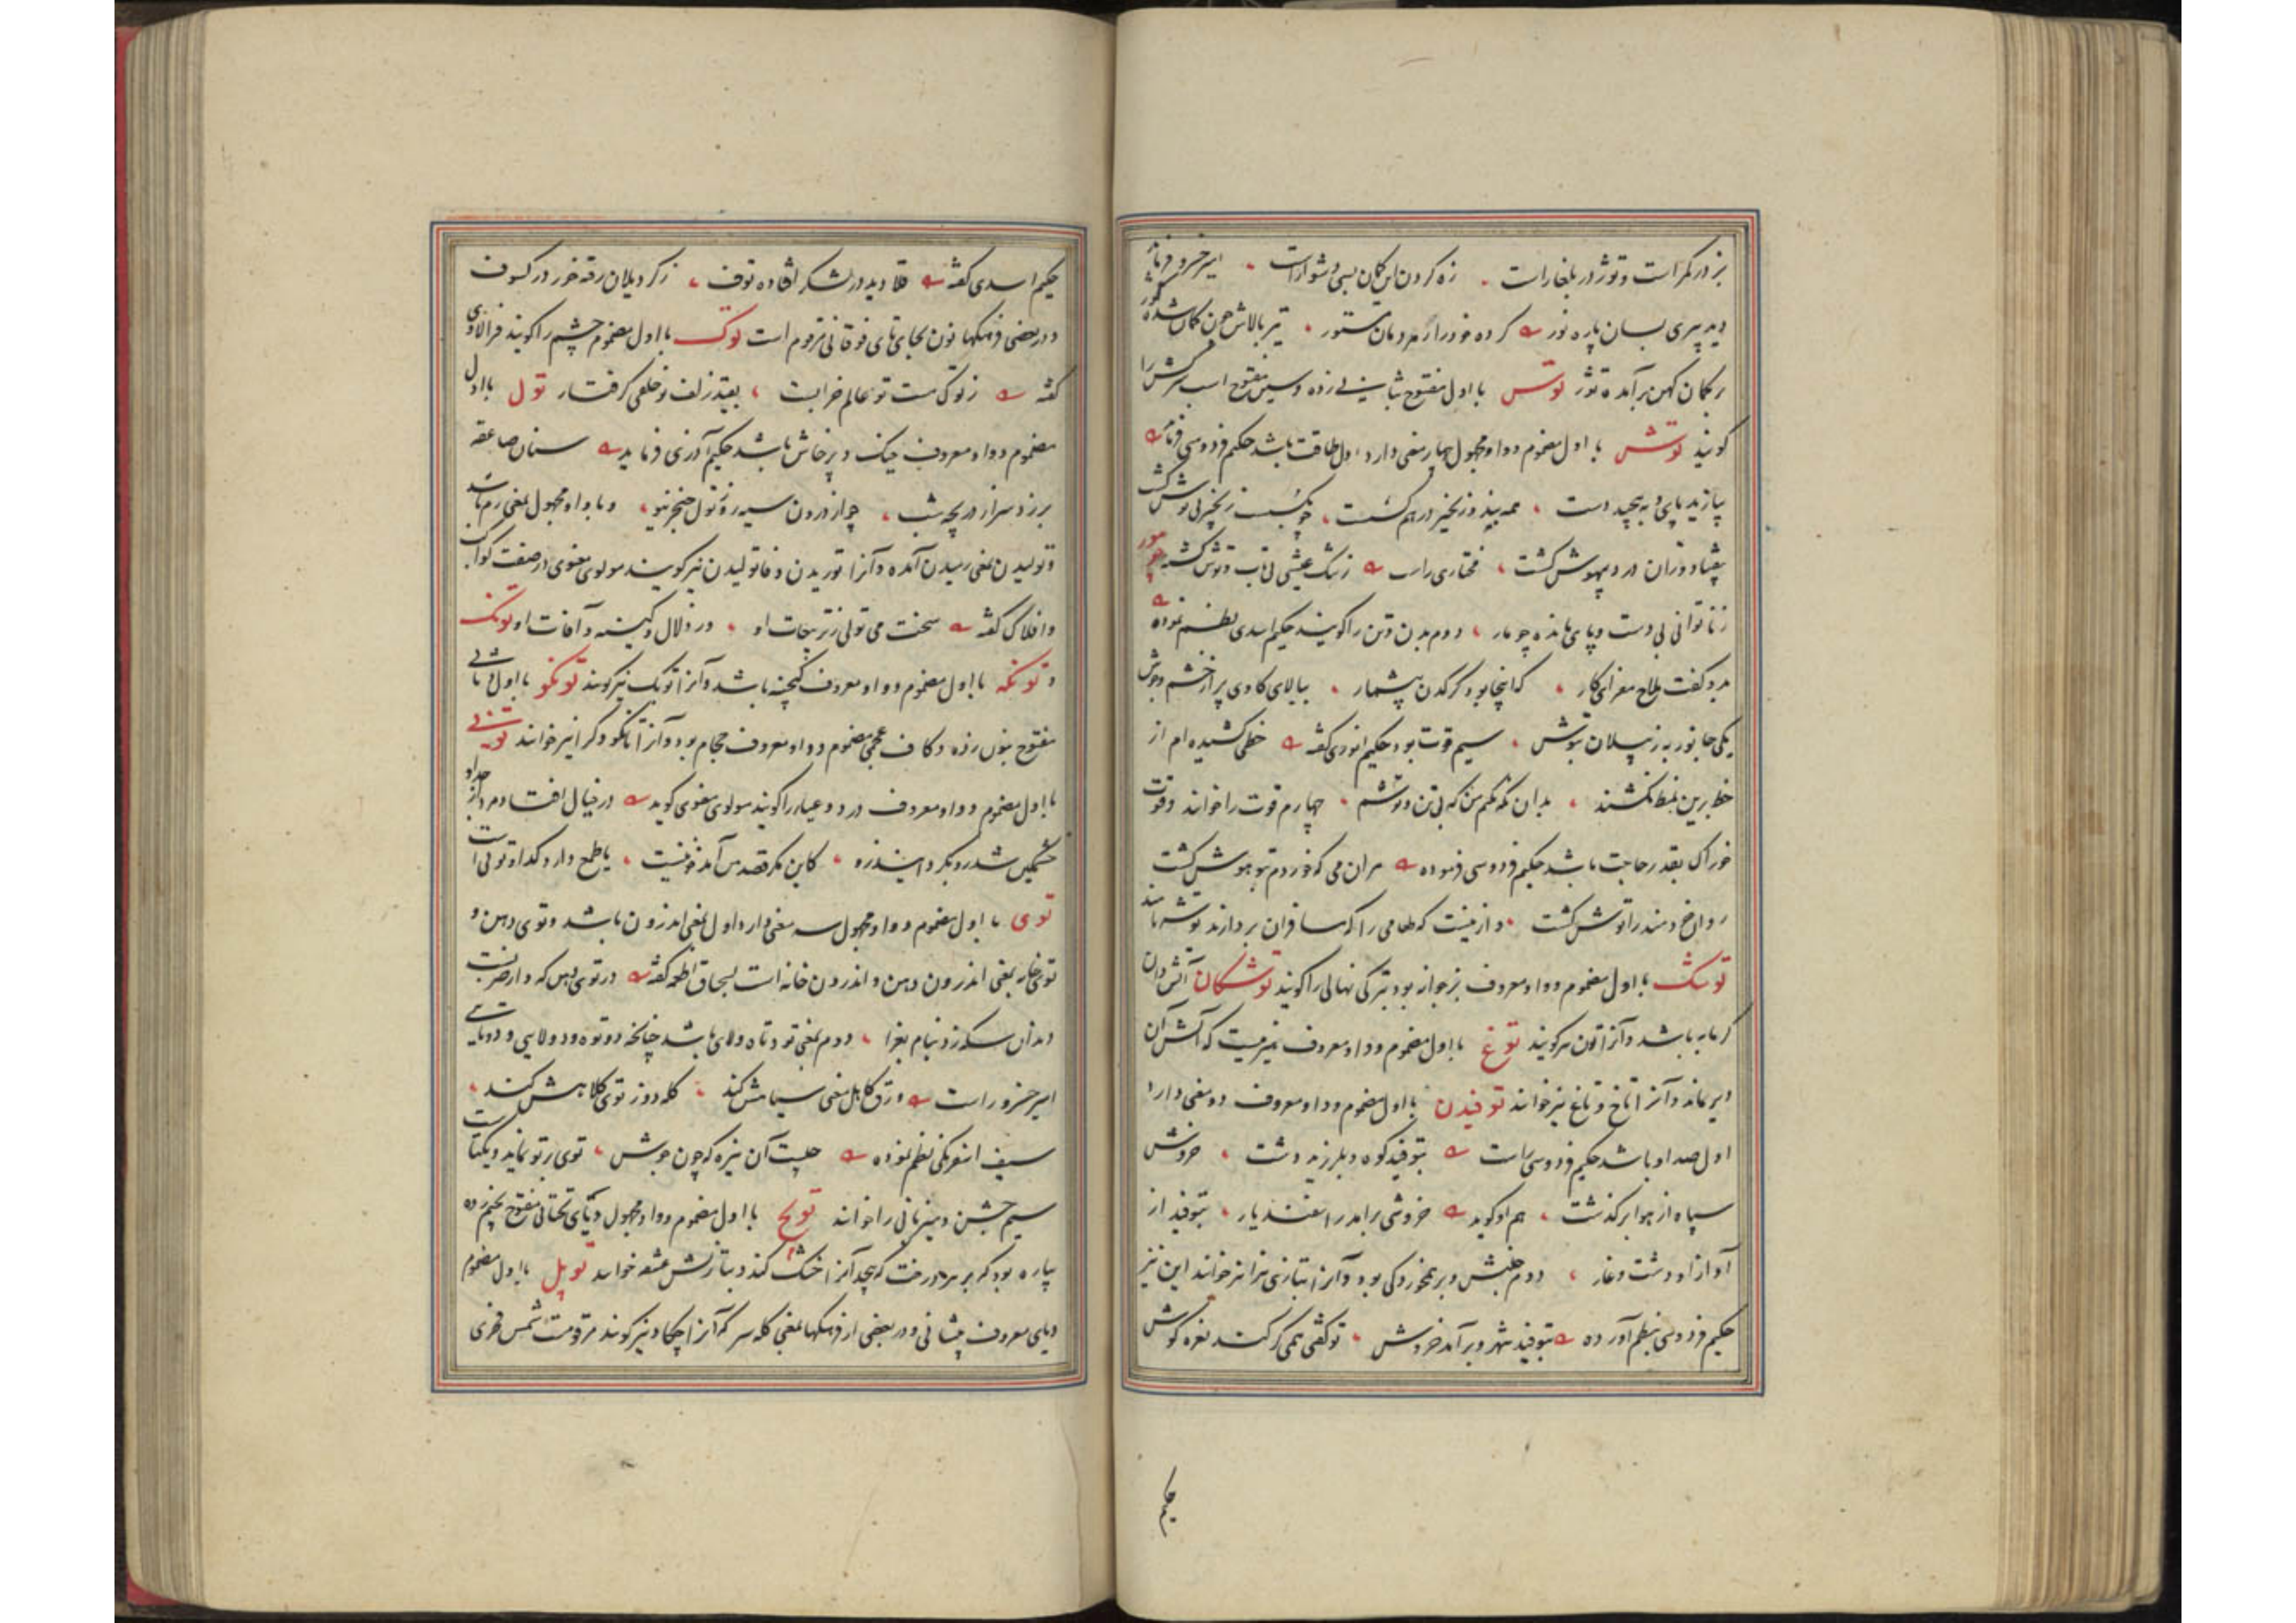 بز در کمر است و توژ در بلغار است زه کردن این کمان بسی دشوار است امیر خسرو فرماید
دید پیری بسان پاره نور کرده خود را ز مردمان مستور تیر بالاش چون کمان شده کوز
بر کمان کهن برآمده توژ توس با اول مفتوح بثانی زده و سین مفتوح اسب سرکش را
کویند توش با اول مضموم و واو مجهول چهار معنی دارد اول طاقت باشد حکیم فردوسی فرماید
بیازید پای و به پیچید دست همه بند و زنجیر در هم شکست چو بکسست زنجیر بی توش کشت
بیفتاد و زان درد بیهوش کشت مختاری راست ز رشک عیشی بی تاب و توش کشته چو مور
ز ناتوانی بی دست و پای مانده چو مار دوم بدن و تن را کویند حکیم اسدی نظم نموده
بدو کفت ملاح کای کار که اینجا بود کرکدن بیشمار ببالای کاوی پر از خشم و جوش
یکی جانور به ز پیلان بتوش سیم قوت بود حکیم انوری کفته خطی کشیده ام از
خط برین نمط نکشند بدان نکه نکنم من که بی تن و توشم چهارم قوت را خوانند و قوت
خوراک بقدر حاجت باشد حکیم فردوسی فرموده مران می که خوردم تو بیهوش کشت
روان خردمند را توش کشت و ازینست که طعامی را که مسافران بردارند توشه نامند
توشک با اول مضموم و واو معروف بز جوانه بود بترکی نهالی را کویند توشکان آتش دان
کرمابه باشد و آنرا تون نیز کویند توغ با اول مضموم و واو معروف هیزمیست که آتش آن
دیر بماند و آنرا تاخ و تاغ نیز خوانند توفیدن با اول مضموم و واو معروف دو معنی دارد
اول صدا و باشد حکیم فردوسی راست بتوفید کوه و بلرزید دشت خروش
سپاه از هوا برکذشت هم او کوید خروشی برآمد ز اسفندیار بتوفید از
آواز او دشت و غار دوم جنبش و برهم خوردکی بود و آنرا بتازی خوانند این نیز
حکیم فردوسی بنظم آورده بتوفید شهر و برآمد خروش تو کفتی همی کر کند نعره کوش
حکیم
حکیم اسدی کفته قلا دید در لشکر افتاده توف ز کرد یلان رفته خور در کسوف
و در بعضی فرهنکها نون بجای تای فوقانی مرقوم است توک با اول مضموم چشم را کویند فرالاوی
کفته ز توک مست تو عالم خرابست بقید زلف تو خلقی کرفتار تول با اول
مضموم و واو معروف جنک و پرخاش باشد حکیم آذری فرماید سنان صاعقه
برزد سر از دریچه شب چو از درون سیه روز تول خنجر نیو و با واو مجهول بمعنی رم باشد
و تولیدن بمعنی رمیدن آمده و آنرا توریدن و فاتولیدن نیز کویند مولوی معنوی در صفت کواکب
و افلاک کفته سخت می تولی ز تربیعات او وز دلال و کینه و آفات او تونک
و تونکه با اول مضموم و واو معروف کنجینه باشد و آنرا توبک نیز کویند تونکو با اول و ثانی
مفتوح بنون زده و کاف عجمی مضموم و واو معروف حجام بود و آنرا تانکو و کرا نیز خوانند تونی
با اول مضموم و واو معروف دزد و عیار را کویند مولوی معنوی کوید در خیال افتاد مرد از جد او
خشمکین شد رو بکردانید زو کاین مکر قصد من آمد خونیست یا طمع دارد کدا و تونی است
توی با اول مضموم و واو مجهول سه معنی دارد اول بمعنی اندرون باشد و توی دهن و
توی خانه بمعنی اندرون دهن و اندرون خانه است بسحاق اطعمه کفته در توی دهن که دار ضربست
دندان سکه زد بنام بغرا دوم بمعنی تو و تاه و لای باشد چنانکه دو توه و دو لایی و دو تایی
امیر خسرو راست ورق کاهل معنی سیاهش کند کله دوز توی کلاهش کند
سیف اسفرنکی نظم نموده چیست آن نیزه که چون جوشش توی بر تو نماید و یکتاست
سیم جشن و میزبانی را خوانند تویج با اول مضموم و واو مجهول و یای تحتانی مفتوح بجیم زده
پیاره بود که بر هر درخت که پیچد آنرا خشک کند و بتازیش عشقه خوانند تویل با اول مضموم
و یای معروف پیشانی و در بعضی از فرهنکها بمعنی کله سر که آنرا چکاد نیز کویند مرقومست شمس فخری